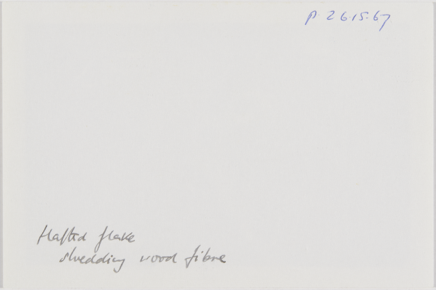 P. 2615.67
Hafted flake
shredding wood fibre